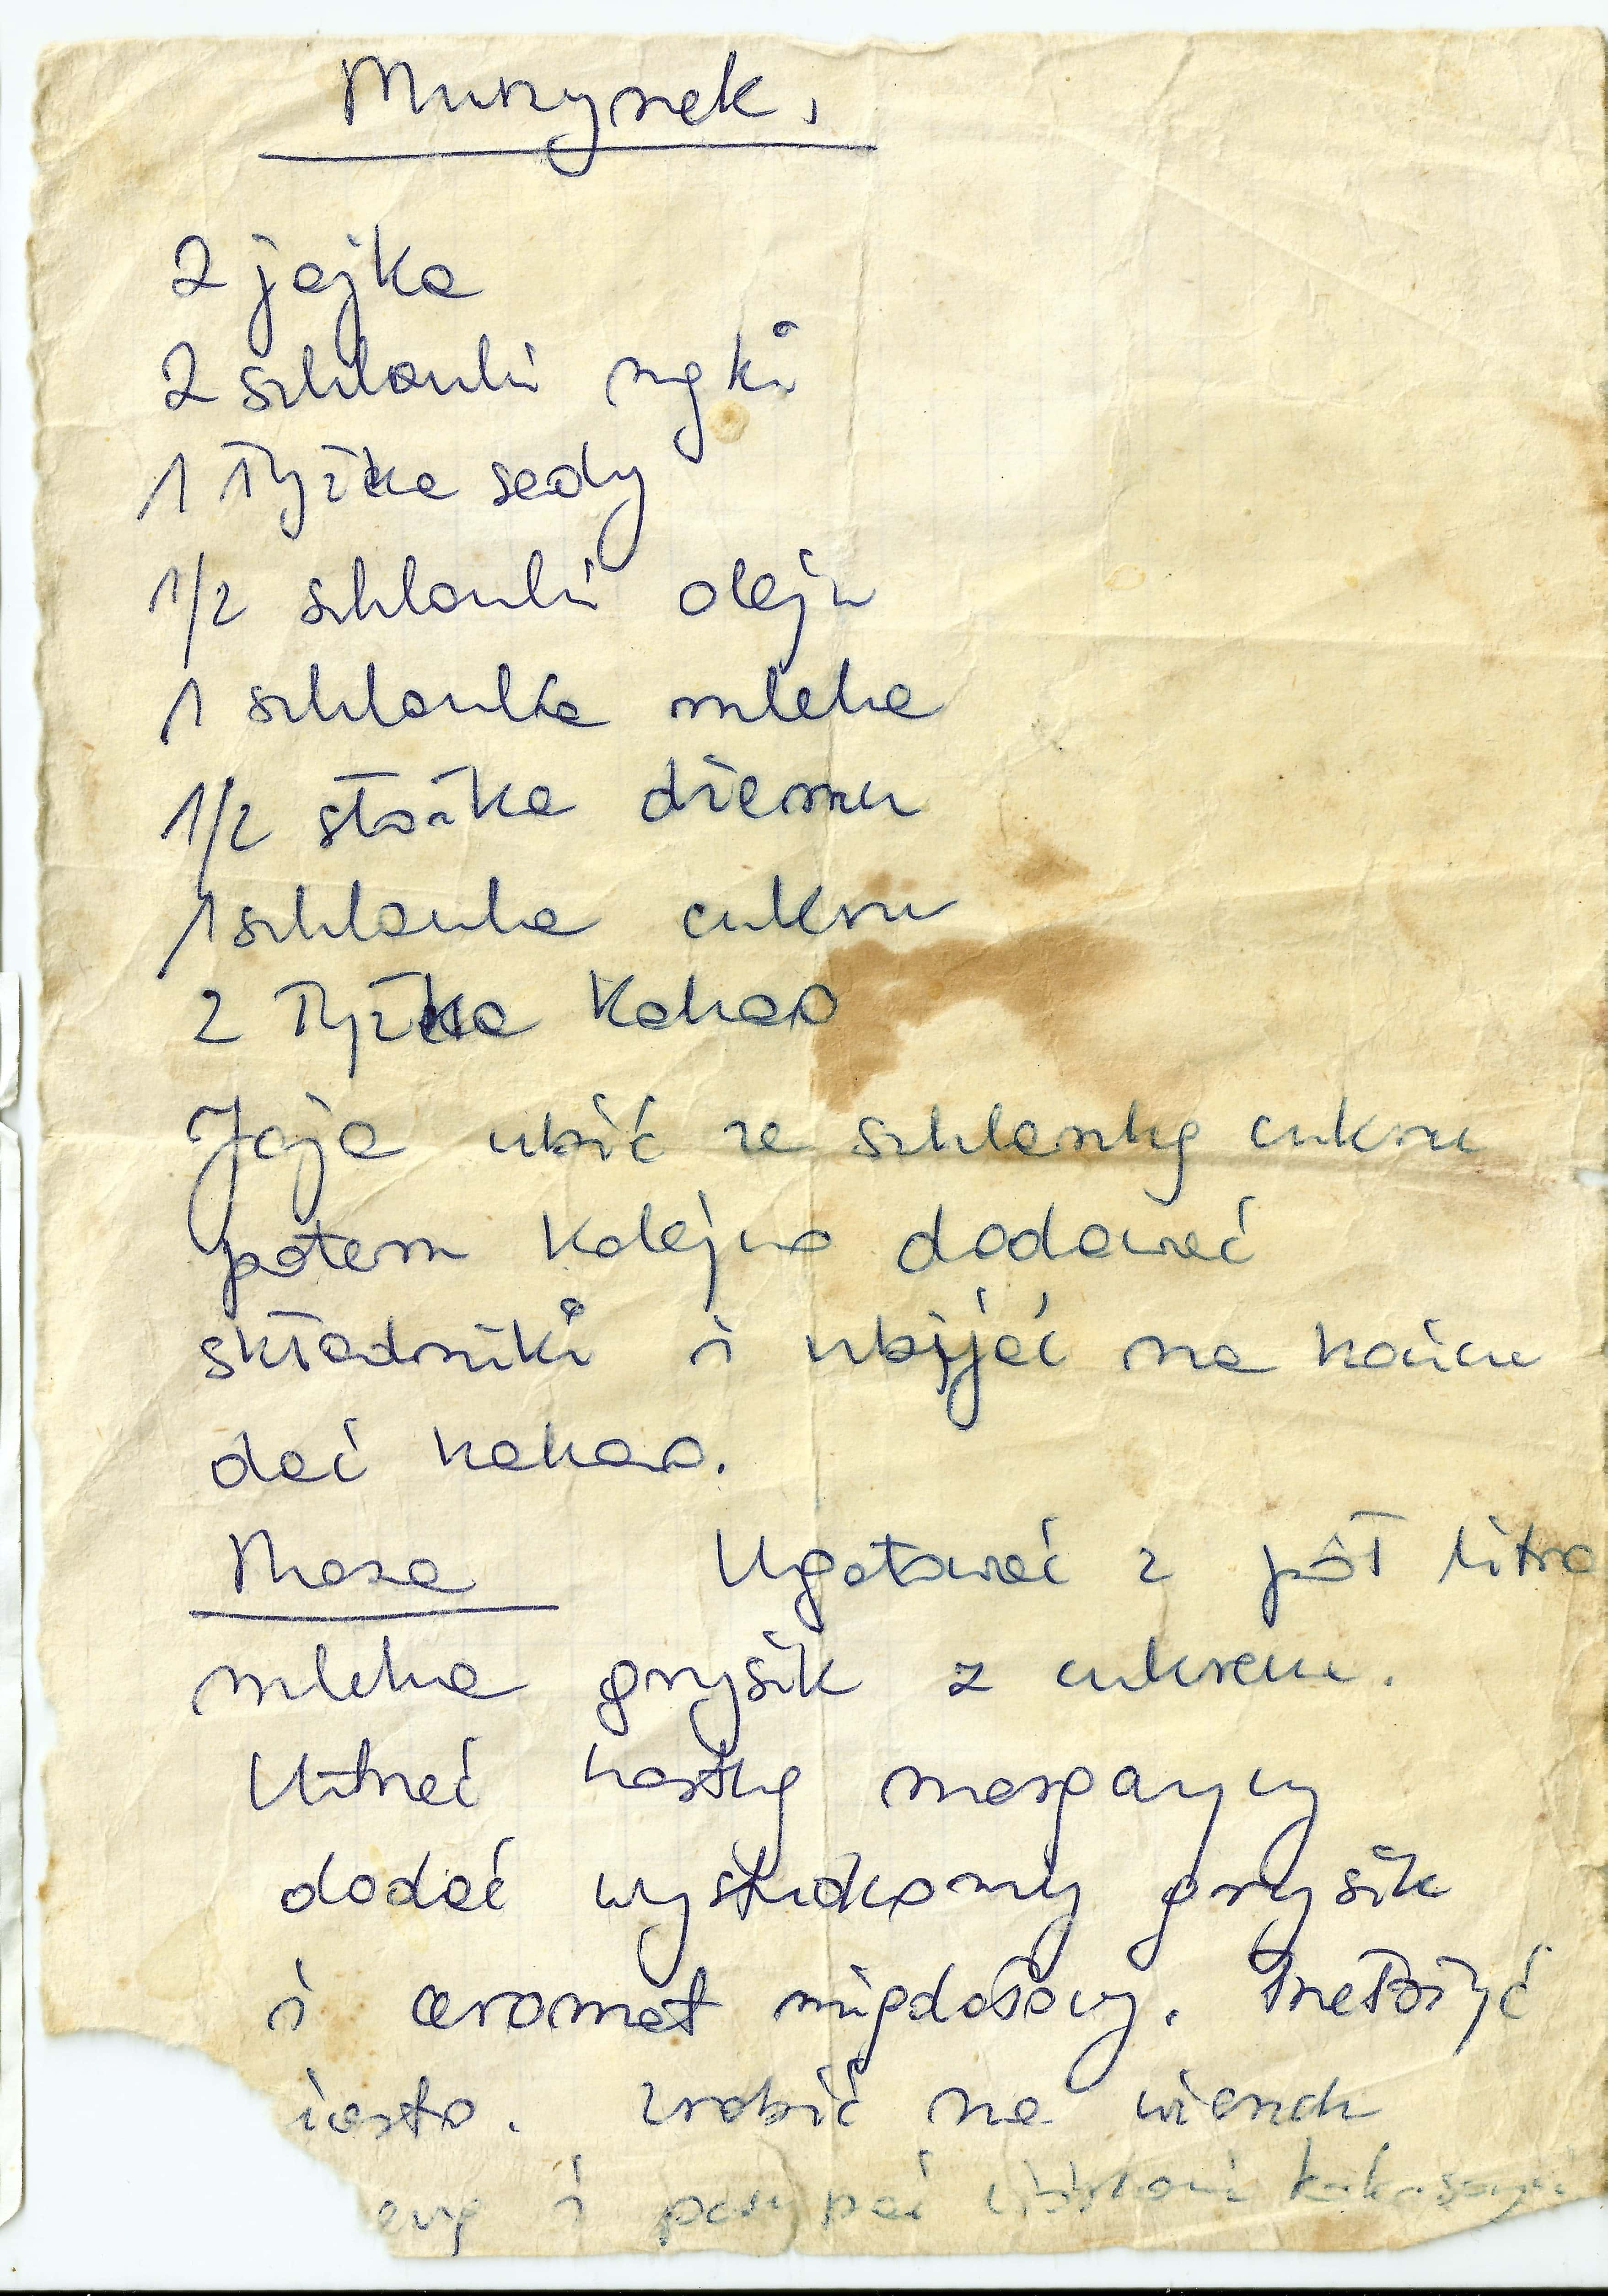 Murzynek.
2 jajka
2 szklanki mąki
1 łyżka sody
1/2 szklanki oleju
1 szklanka mleka
1/2 słoika dżemu
1 szklanka cukru
2 łyżka kakao
Jaja ubić ze szklanką cukru
potem kolejno dodawać
składniki i ubijać na końcu
dać kakao.
Masa Ugotować z pół litra
mleka grysik z cukrem.
Utrzeć kostkę margaryny
dodać wystudzony grysik
i aromat migdałowy. Przełożyć
iasto. Zrobić na wierzch
ewę i posypać wiórkami kokosowymi